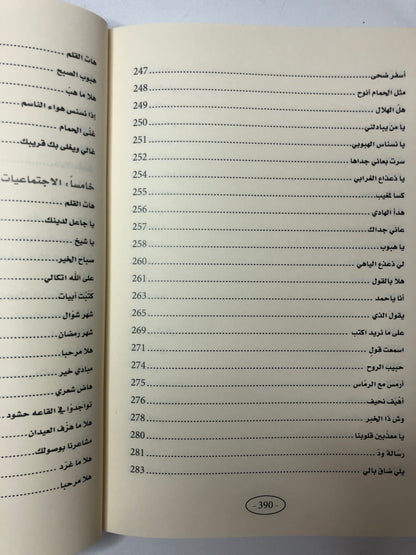 أسفر ضحى 247
مثل الحمام أنوح 248
هلّ الهلال 249
يا من يبادلني 250
يا نسناس الهبوبي 251
سرت بعاني جداها 252
يا ذعذاع الغرابي 254
كسا لمغيب 255
هدأ الهادي 256
عاني جداك 257
يا هبوب 258
لي ذعذع الياهي 260
هلا بالقول 261
أنا ياحمد 263
يقول الذي 265
على ما تريد اكتب 269
اسمعت قول 271
حبيب الروح 274
أرمس مع الرماس 275
أهيف نحيف 276
وش ذا الخبر 278
يا معذبين قلوبنا 280
رسالة ود 281
بلي ضاق بالي 283
- 390 -
هات القلم
هبوب الصبح
هلا ما هبّ
إذا نسنس هواء الناسم
غنّى الحمام
غالي ويغلى بك قريبك
خامساً، الاجتماعيات
هات القلم
يا جاعل لدينك
يا شيخ
صباح الخير
على الله اتكالي
كتبت أبيات
شهر شوال
شهر رمضان
هلا مرحبا
مبادي خير
هاض شعري
تواجدوا في القاعه حشود
هلا ما هزّف العيدان
مشاعرنا بوصولك
هلا ما غرّد
هلا مرحبا